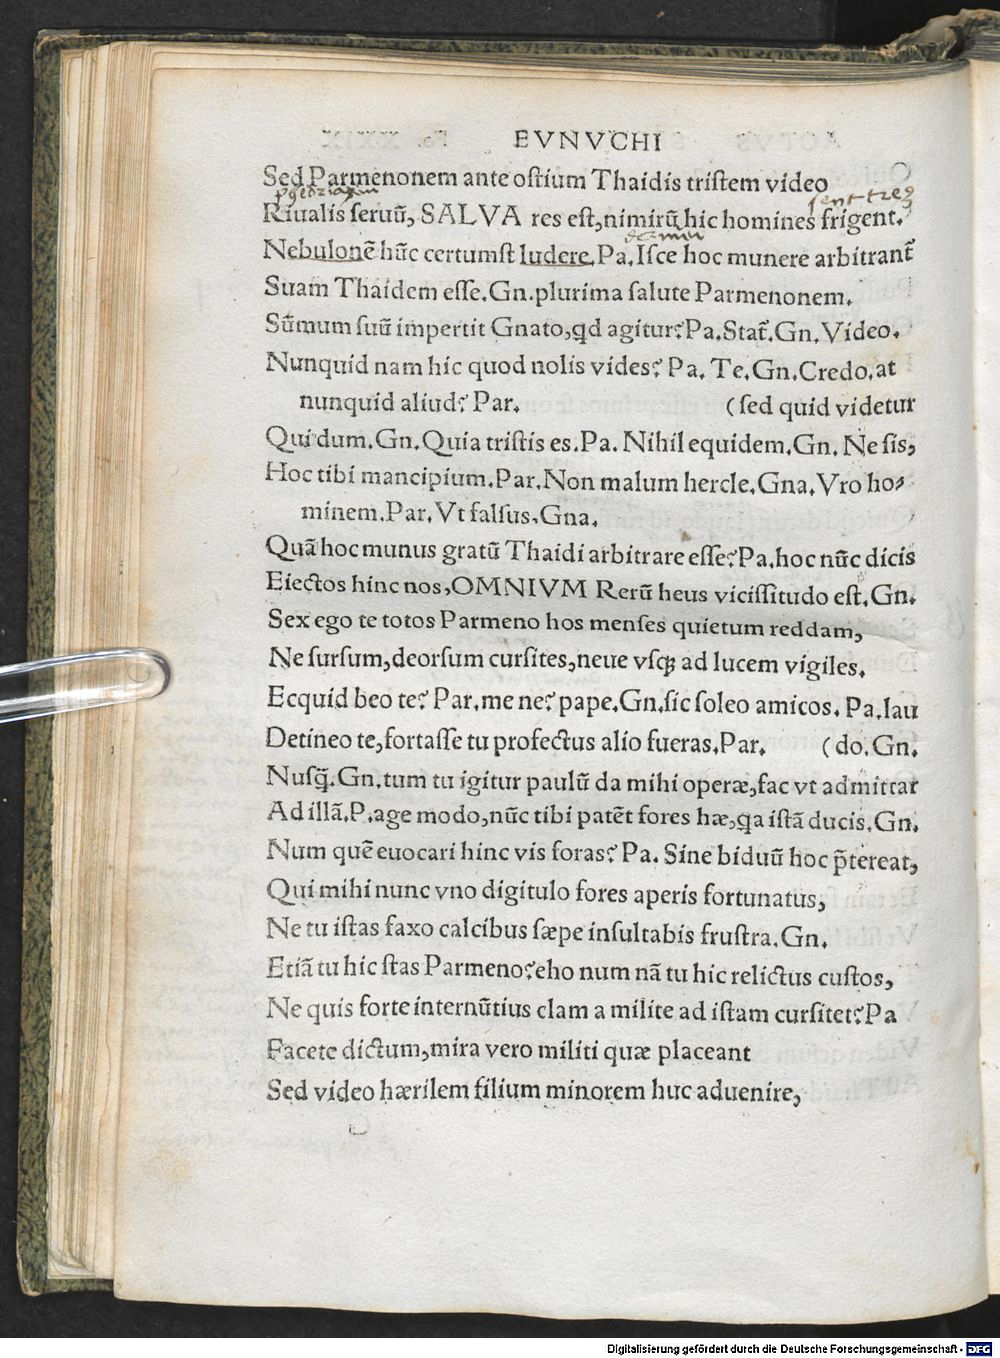 EVNVCHI
Sed Parmenonem ante ostium Thaidis tristem video
Riualis seruū, SALVA res est, nimirū hic homines frigent.
Nebulonē hūc certumst ludere. Pa. Isce hoc munere arbitrant᷑
Suam Thaidem esse. Gn. plurima salute Parmenonem.
Sūmum suū impertit Gnato, qd agitur? Pa. Stat᷑. Gn. Video.
Nunquid nam hic quod nolis vides? Pa. Te. Gn. Credo, at
nunquid aliud? Par. (sed quid videtur
Qui dum. Gn. Quia tristis es. Pa. Nihil equidem. Gn. Ne sis,
Hoc tibi mancipium. Par. Non malum hercle. Gna. Vro ho⸗
minem. Par. Vt falsus. Gna.
Quā hoc munus gratū Thaidi arbitrare esse? Pa. hoc nūc dicis
Eiectos hinc nos, OMNIVM Rerū heus vicissitudo est. Gn.
Sex ego te totos Parmeno hos menses quietum reddam,
Ne sursum, deorsum cursites, neue vsqꝫ ad lucem vigiles.
Ecquid beo te? Par. me ne? pape. Gn. sic soleo amicos. Pa. lau
Detineo te, fortasse tu profectus alio fueras. Par. (do. Gn.
Nusq̄. Gn. tum tu igitur paulū da mihi operæ, fac vt admittar
Ad illā. P. age modo, nūc tibi patēt fores hæ, qa istā ducis. Gn.
Num quē euocari hinc vis foras? Pa. Sine biduū hoc p̄tereat,
Qui mihi nunc vno digitulo fores aperis fortunatus,
Ne tu istas faxo calcibus sæpe insultabis frustra. Gn.
Etiā tu hic stas Parmeno? eho num nā tu hic relictus custos,
Ne quis forte internūtius clam a milite ad istam cursitet? Pa
Facete dictum, mira vero militi quæ placeant
Sed video hærilem filium minorem huc aduenire,
Digitalisierung gefördert durch die Deutsche Forschungsgemeinschaft - DFG